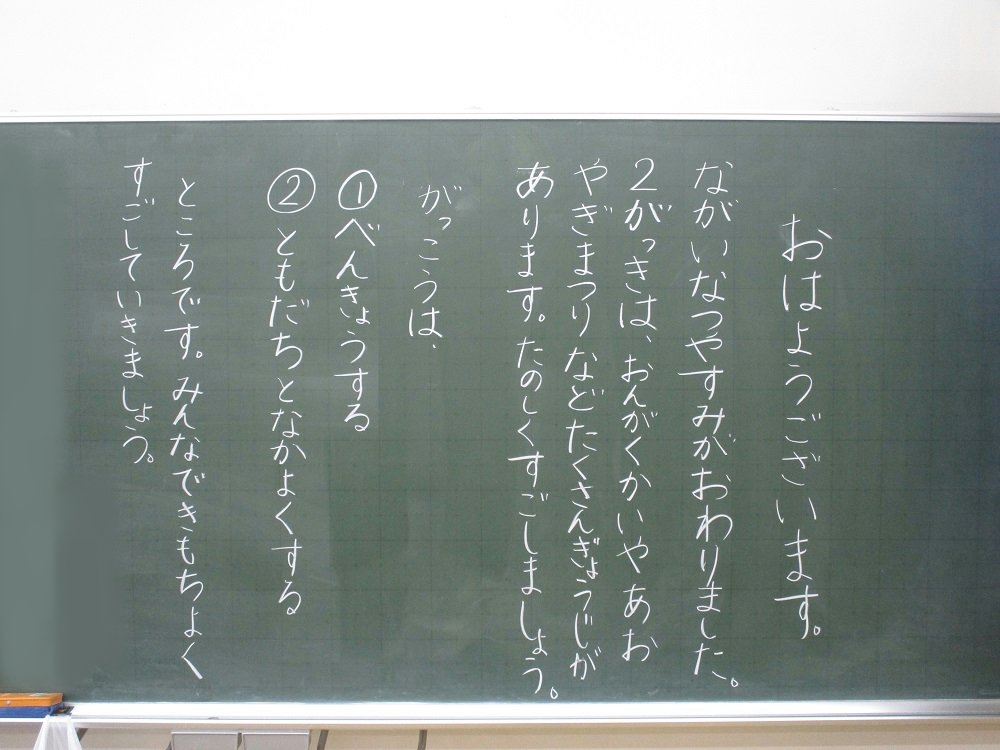 おはようございます。
ながいなつやすみがおわりました。
２がっきは、おんがくかいやあお
やぎまつりなどたくさんぎょうじが
あります。たのしくすごしましょう。
がっこうは、
①べんきょうする
②ともだちとなかよくする
ところです。みんなできもちよく
すごしていきましょう。